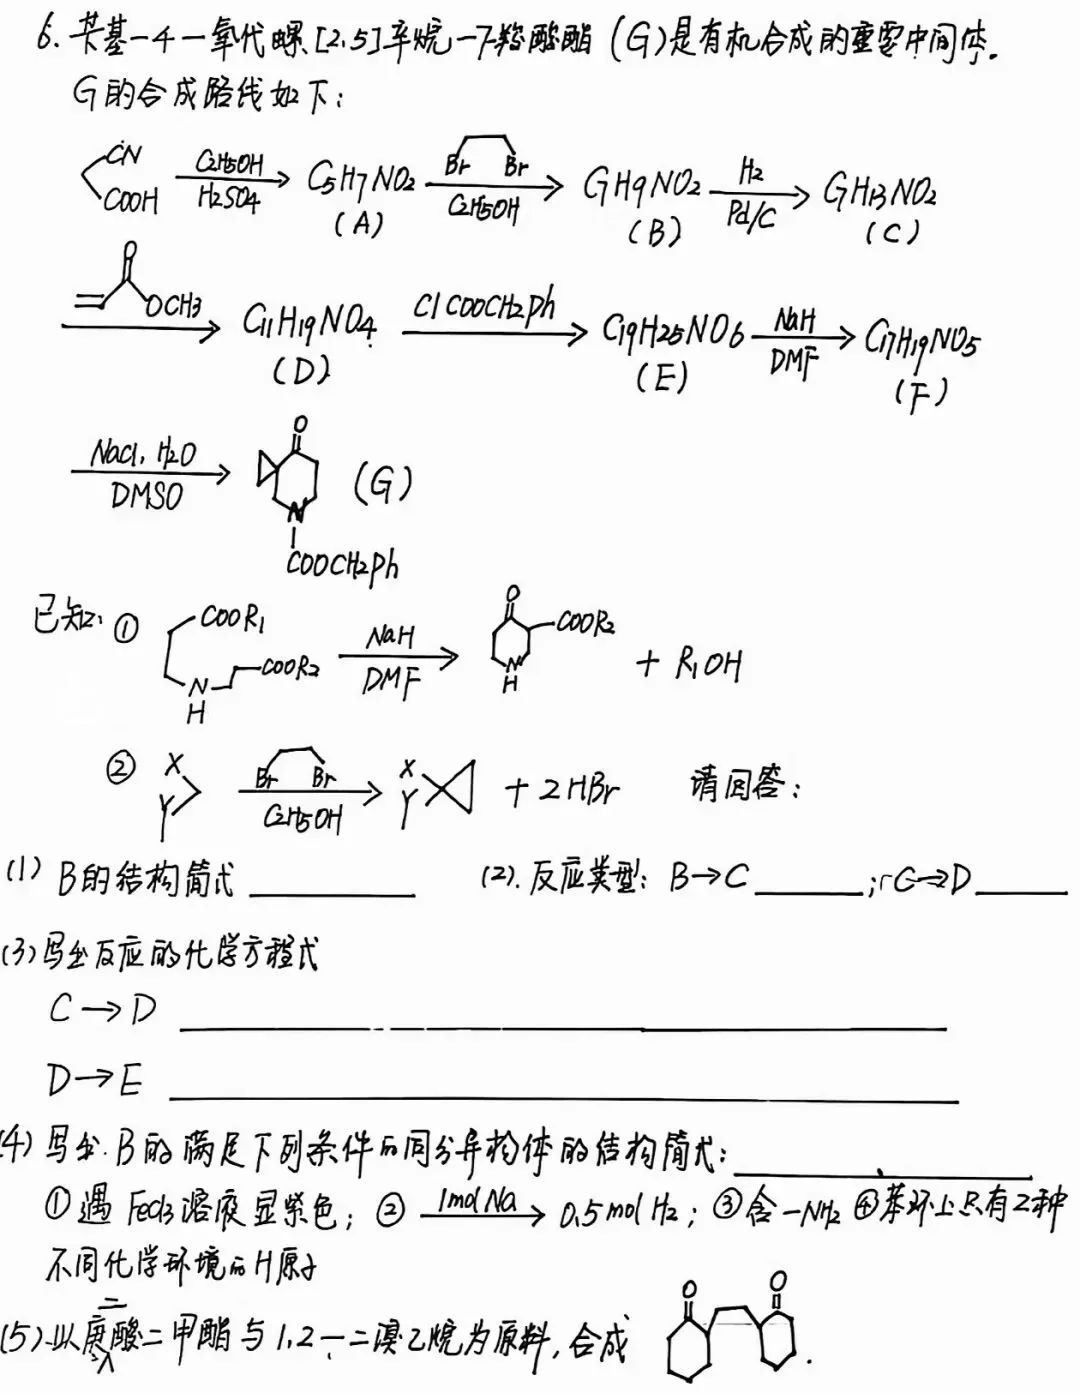 6. 苄基-4-氧代螺[2.5]辛烷-7-羧酸酯 (G)是有机合成的重要中间体.
G的合成路线如下:
CN
COOH
C2H5OH
H2SO4
C5H7NO2
(A)
Br Br
C2H5OH
C7H9NO2
(B)
H2
Pd/C
C7H13NO2
(C)
O
OCH3
C11H19NO4
(D)
ClCOOCH2Ph
C19H25NO6
(E)
NaH
DMF
C17H19NO5
(F)
NaCl, H2O
DMSO
O
N
COOCH2Ph
(G)
已知: ①
COOR1
COOR2
N
H
NaH
DMF
O
COOR2
N
H
+ R1OH
②
X
Y
Br Br
C2H5OH
X
Y
+ 2HBr 请回答:
(1) B的结构简式 (2). 反应类型: B→C ; C→D
(3)写出反应的化学方程式
C→D
D→E
(4) 写出B的满足下列条件的同分异构体的结构简式:
①遇FeCl3溶液显紫色; ② 1mol Na 0.5mol H2; ③含-NH2 ④苯环上只有2种
不同化学环境的H原子
(5)以庚二酸二甲酯与1,2-二溴乙烷为原料,合成
O O
.